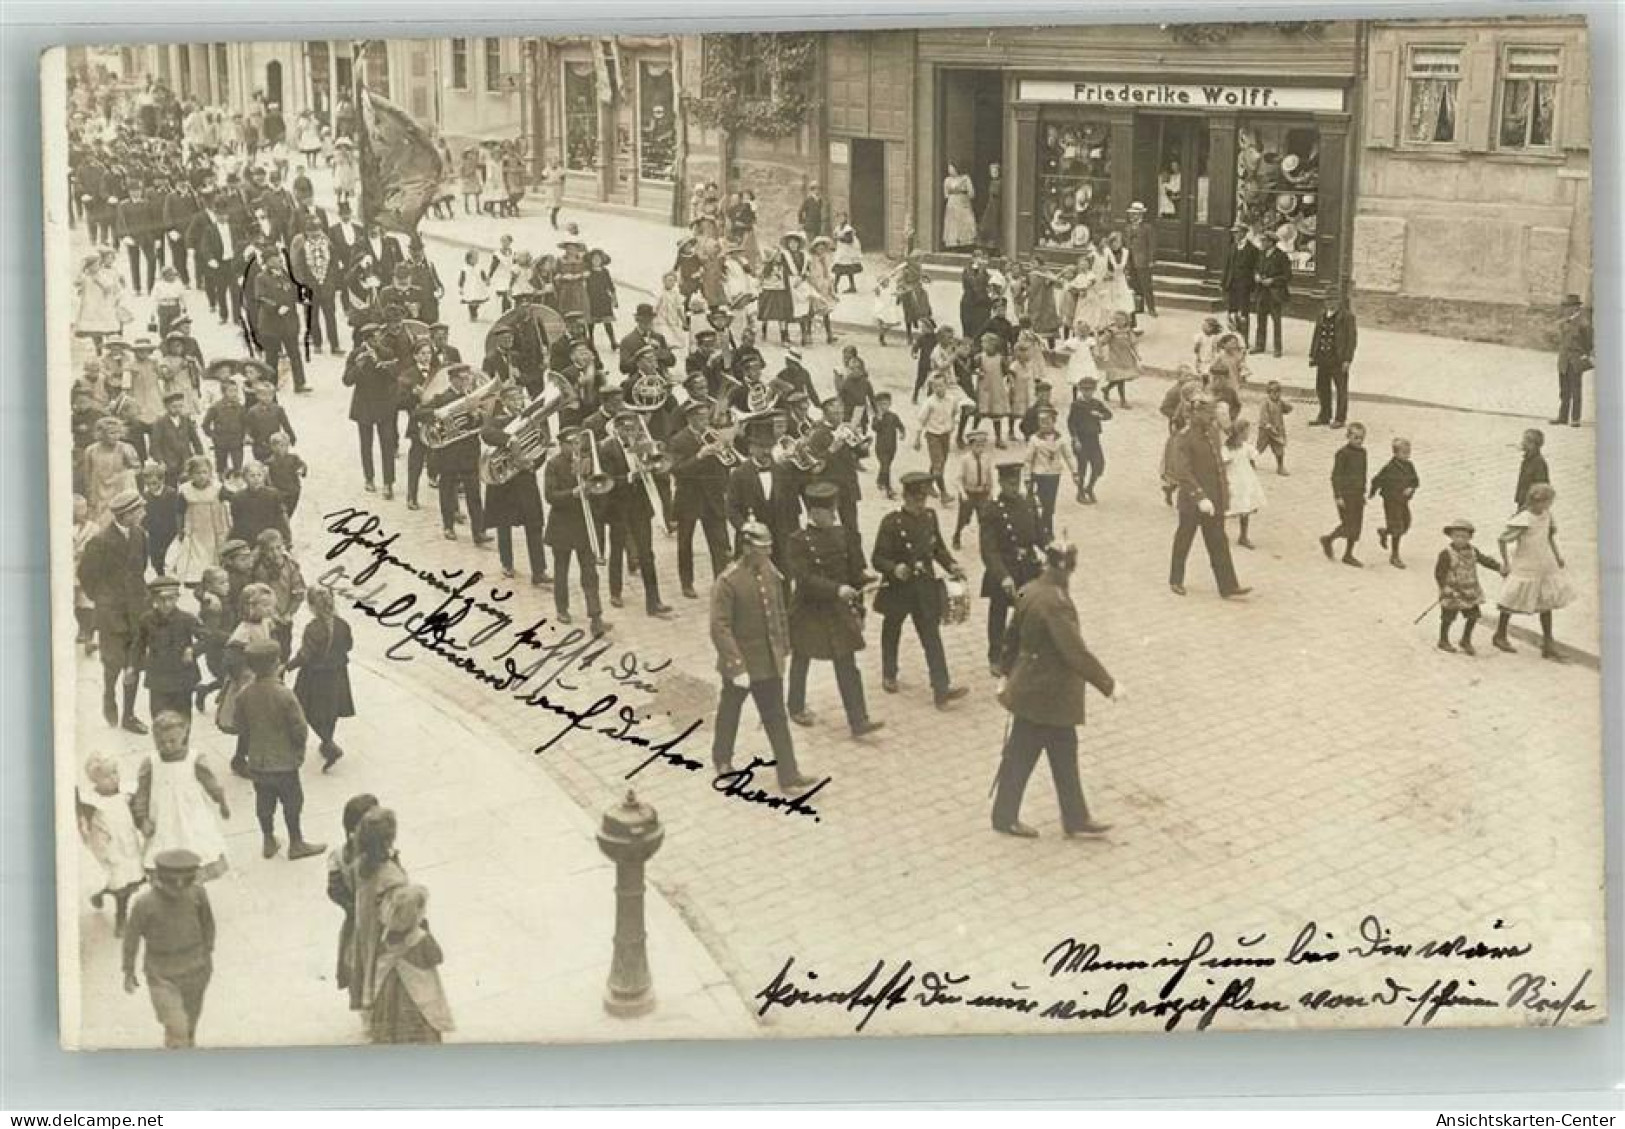 Friederike Wolff.
Schützenaufzug siehst Du
Onkel Eduard auf dieser Karte.
Wenn ich nun bei Dir wäre
könntest Du mir viel erzählen von d. schönen Reise
www.delcampe.net
Ansichtskarten-Center